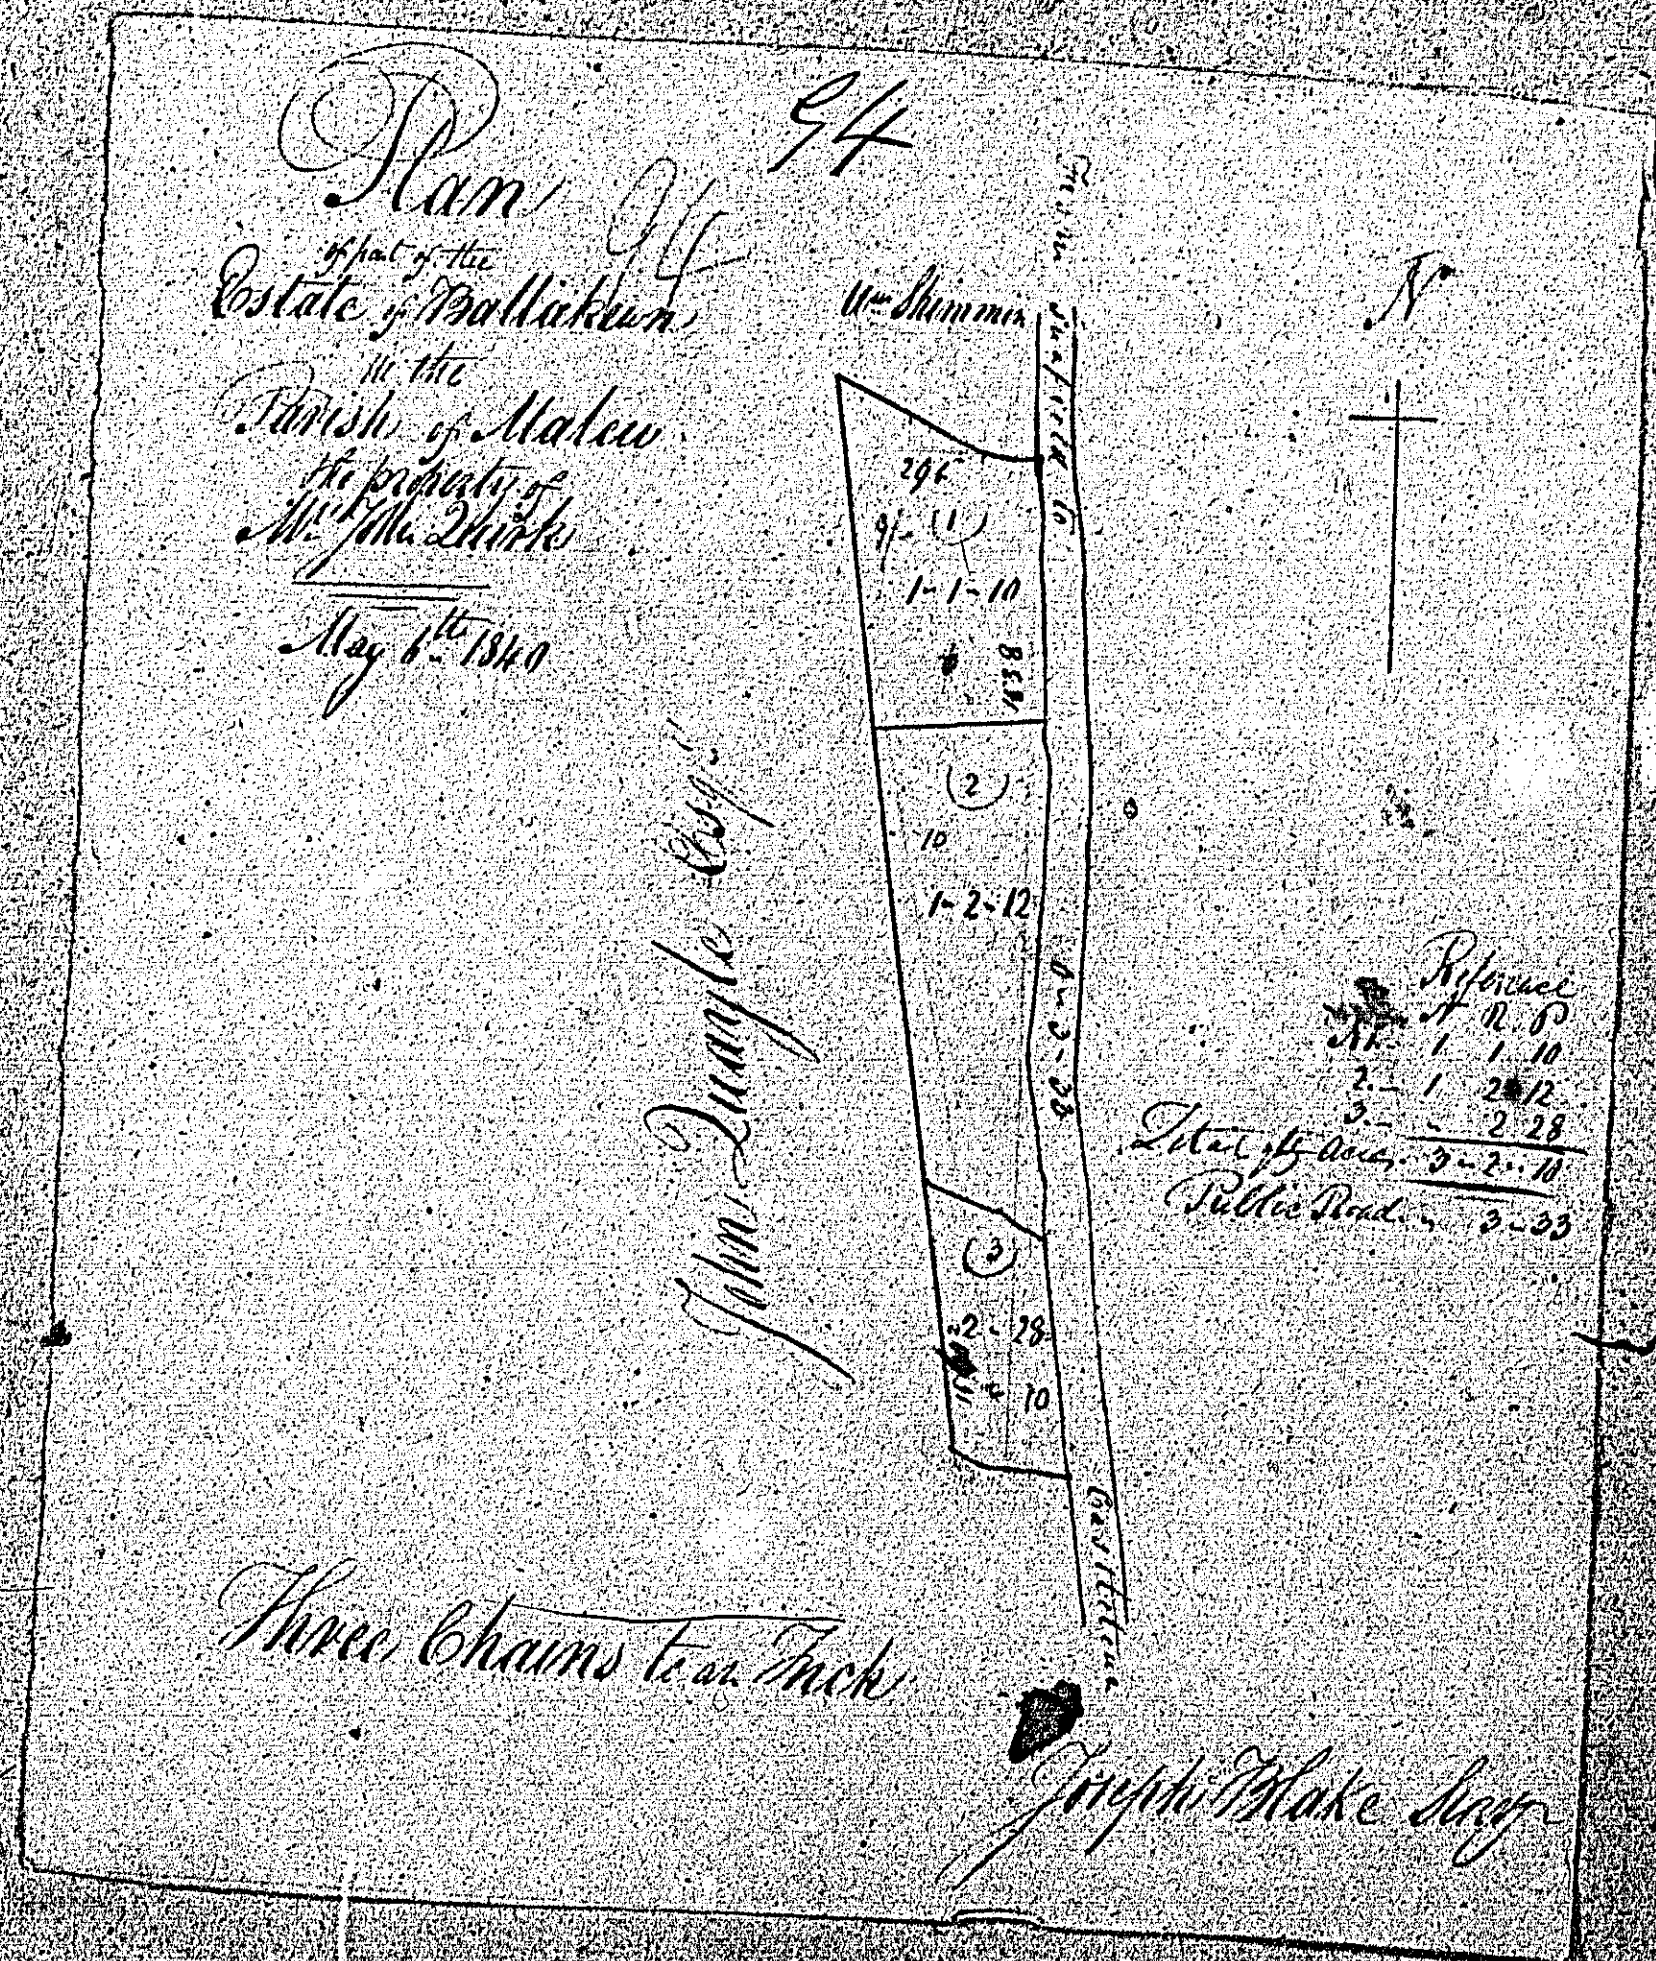 94
Plan
94
of part of the
Estate of Ballakewn
in the
Parish of Malew
the property of
Mr. John Quirk
May 6th 1840
Wm Shimmin
From to
N
(1)
1-1-10
(2)
10
1-2-12
0-3-33
(3)
2-28
10
Castletown
John Quayle Esqr.
Reference
A R. P
No. 1 1 10
2.- 1 2 12
3.- - 2 28
Total qty acres. 3-2-10
Public Road. " 3-33
Three Chains to an Inch
Joseph Blake Survr